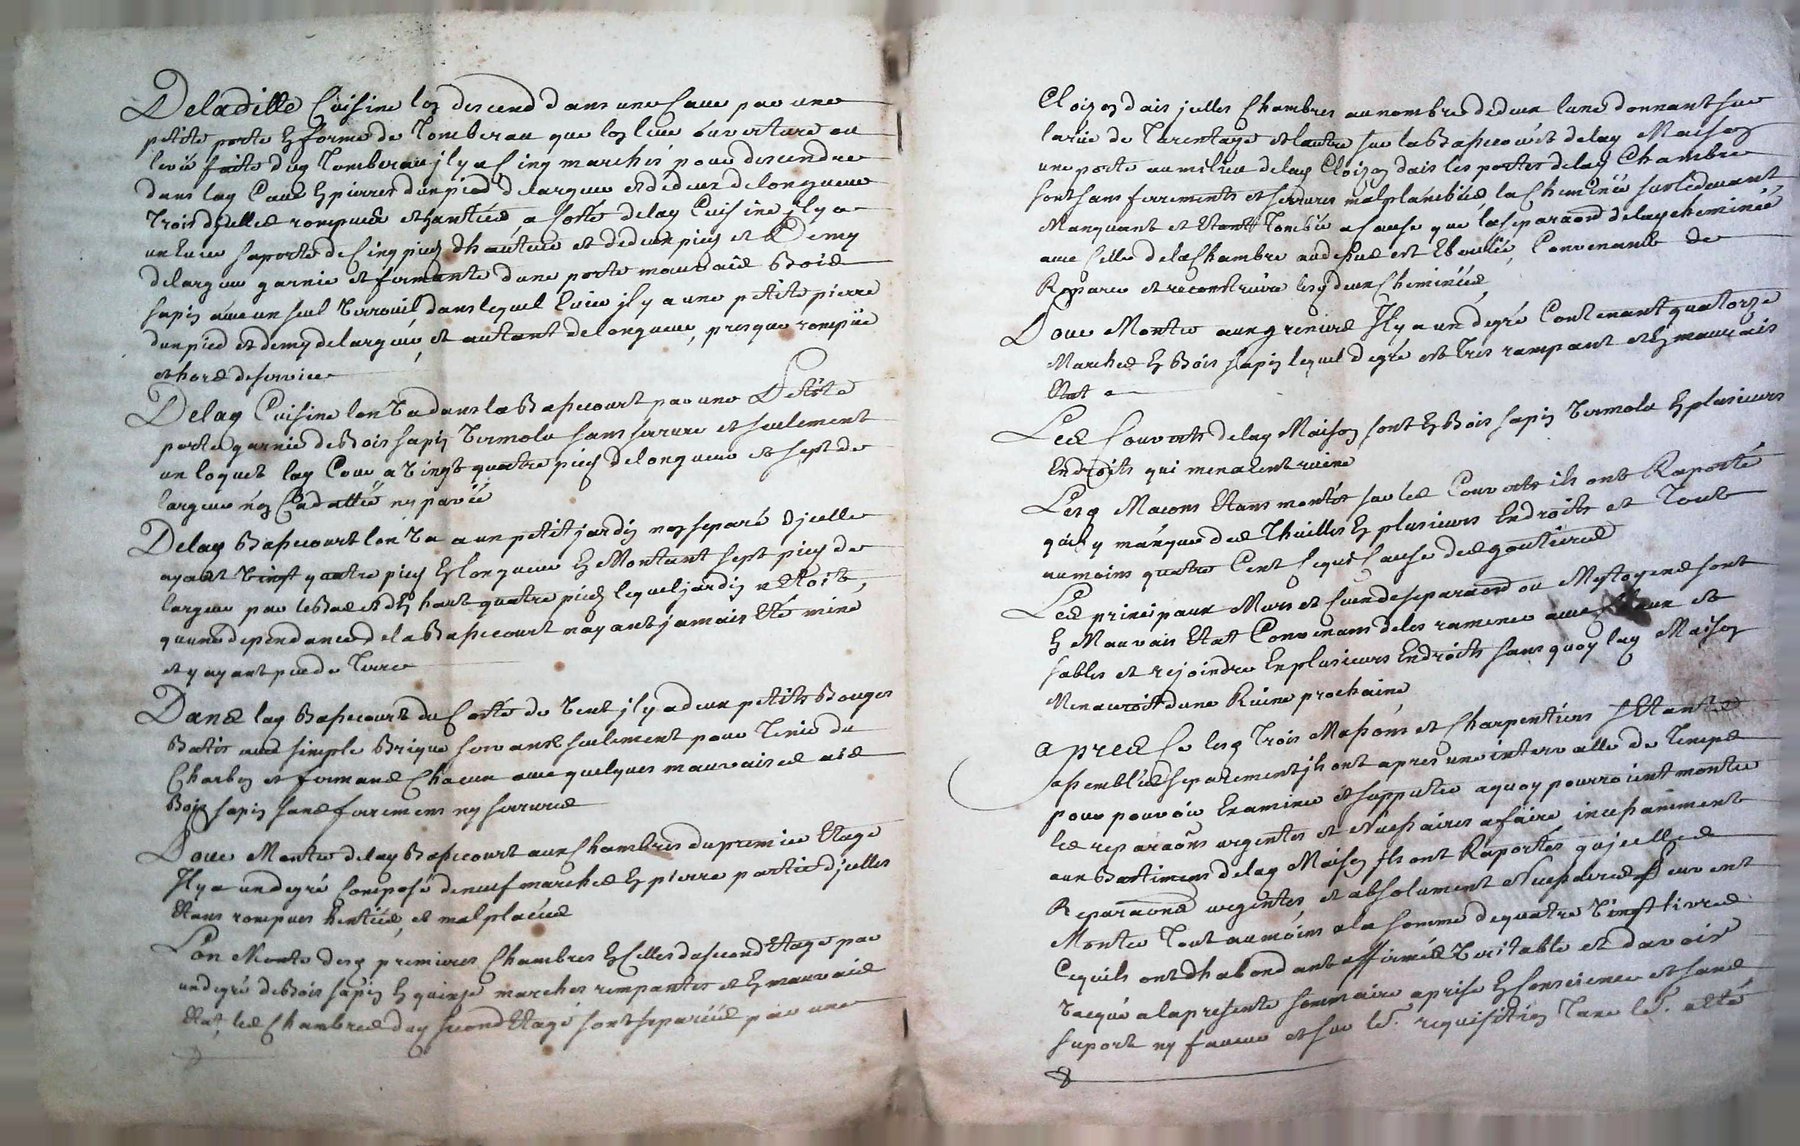 De laditte Cuisine lon descend dans une Cave par une
petite porte en forme de Tombereau que lon leve ouverture ou
levée faite dud Tombereau il y a Cinq marches pour descendre
dans lad Cave en pierres dun pied de largeur et de deux de longueur
Trois djcelles rompues et hantées, a Costé de lad Cuisine jl y a
un Evier sa porte de Cinq pieds dhauteur et de deux pieds et Demy
de largeur garnie et fermante dune porte mauvais Bois
sapin avec un seul verrouil dans lequel Evier jl y a une petite pierre
dun pied et demy de largeur, et autant de longueur, presque rompüe
et hors de service
De lad Cuisine lon Va dans la Bassecourt par une Petite
porte garnie de Bois sapin Vermolu sans serrure et seulement
un loquet lad Cour a Vingt quatre pieds de longueur et sept de
largeur non Cadattée ny pavée
De lad Bassecourt lon Va a un petit jardin non separé djcelle
ayant Vingt quatre pieds en longueur en Montant sept pieds de
largeur par le Bas et En haut quatre pieds lequel jardin n Etoit,
quune dependance de la Bassecourt nayant jamais Eté miné
et y ayant peu de Terre
Dans lad Bassecourt du Costé de Vent jl y a deux petits Bouges
Batis avec simple Brique servants seulement pour Tenir du
Charbon et fermans Chacun avec quelques mauvaises ais
Bois sapin sans ferremens ny serrures
Pour Monter de lad Bassecourt aux Chambres du premier Etage
Jl y a un degré Composé de neuf marches en pierre partie djcelles
Etans rompues hentées, et mal placées
L'on Monte desd premieres Chambres En Celles du second Etage par
un degré de Bois sapin en quinze marches rempantes et en mauvais
Etat, les Chambres dud second Etage sont separées par une
Cloizon dais jcelles Chambres au nombre de deux lune donnant sur
la rüe de Tarentaize et lautre sur la Bassecourt de lad Maison
une porte au milieu de lad Cloizon dais les portes de lad Chambre
sont sans ferrements et serrures mal planchée la Cheminée sur le devant
Manquant et Etant Tombée a Cause que la separaõn de lad cheminée
avec Celle de la Chambre au dessus est Eboulée, Convenant de
Reparer et reconstruire lesd deux Cheminées
Pour Monter aux greniers Jl y a un degré Contenant quatorze
Marches en Bois sapin lequel degré est Tres rampant et en mauvais
Etat
Les Couverts de lad Maison sont en Bois sapin Vermolu En plusieurs
Endroits qui menacent ruine
Lesd Macons Etans montés sur les Couverts ils ont Raporté
quil y manque des Thuilles En plusieurs Endroits et Tout
au moins quatre Cent Ce qui Cause des goutieres
Les principaux Murs et Ceux de separaõn ou Mytoyens sont
En Mauvais Etat Convenans de les ramener avec Chaux et
sables et rejoindre En plusieurs Endroits sans quoy lad Maison
Menaceroit dune Ruine prochaine
Apres Ce lesd Trois Massons et Charpentiers s Etants
assemblés separement jls ont apres une intervalle de Temps
pour pouvoir Examiner et supputer a quoy pourroient monter
les reparaõns urgentes et necessaires a faire incessamment
aux Bastimens de lad Maison jls ont Raportés qujcelles
Reparaõns urgentes et absolument necessaires Peuvent
Monter Tout au moins a la somme de quatre Vingt livres
Ce quils ont dhabondant affirmés Veritable et davoir
Vacqué a la presente sommaire aprise En Conscience et sans
suport ny faveur et sur le S.r requisition Tans le S.r a été